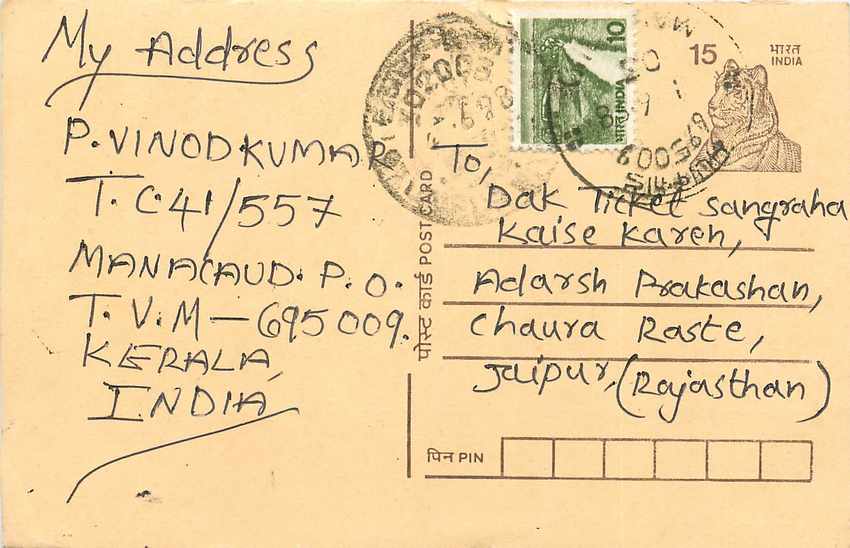 My Address
P. VINOD KUMAR
T. C. 41/557
MANACAUD. P. O.
T. V. M - 695009.
KERALA,
INDIA
पोस्ट कार्ड POST CARD
10
भारत INDIA
15
भारत
INDIA
695009
To,
Dak Ticket Sangraha
Kaise Karen,
Adarsh Prakashan,
Chaura Raste,
Jaipur, (Rajasthan)
पिन PIN